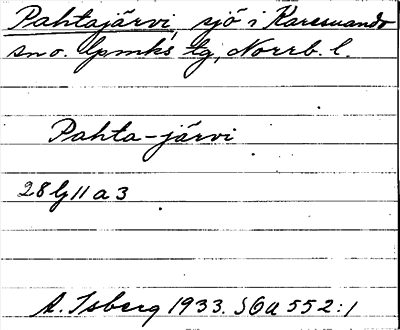 Pahtajärvi, sjö i Karesuando
sn o. lpmks tg, Norrb. l.
Pahta-järvi
28 lj 11 a 3
A. Isberg 1933. SOA 552:1